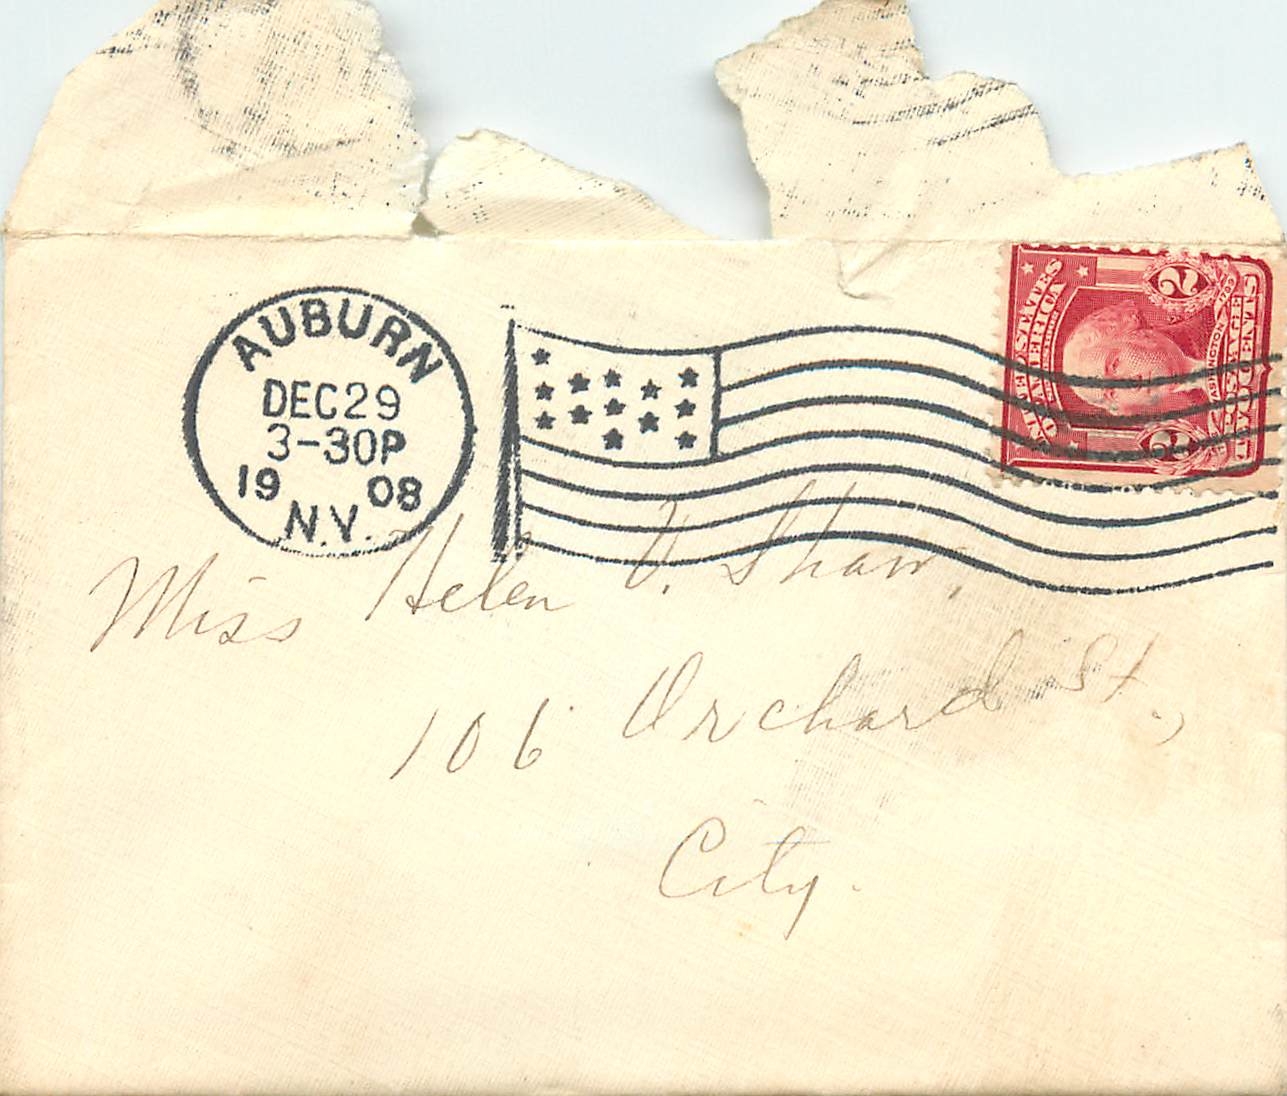 AUBURN
DEC 29
3-30P
19 08
N.Y.
UNITED STATES OF AMERICA
STAMP
2 2
WASHINGTON
Miss Helen V. Shaw,
106 Orchard St.,
City.